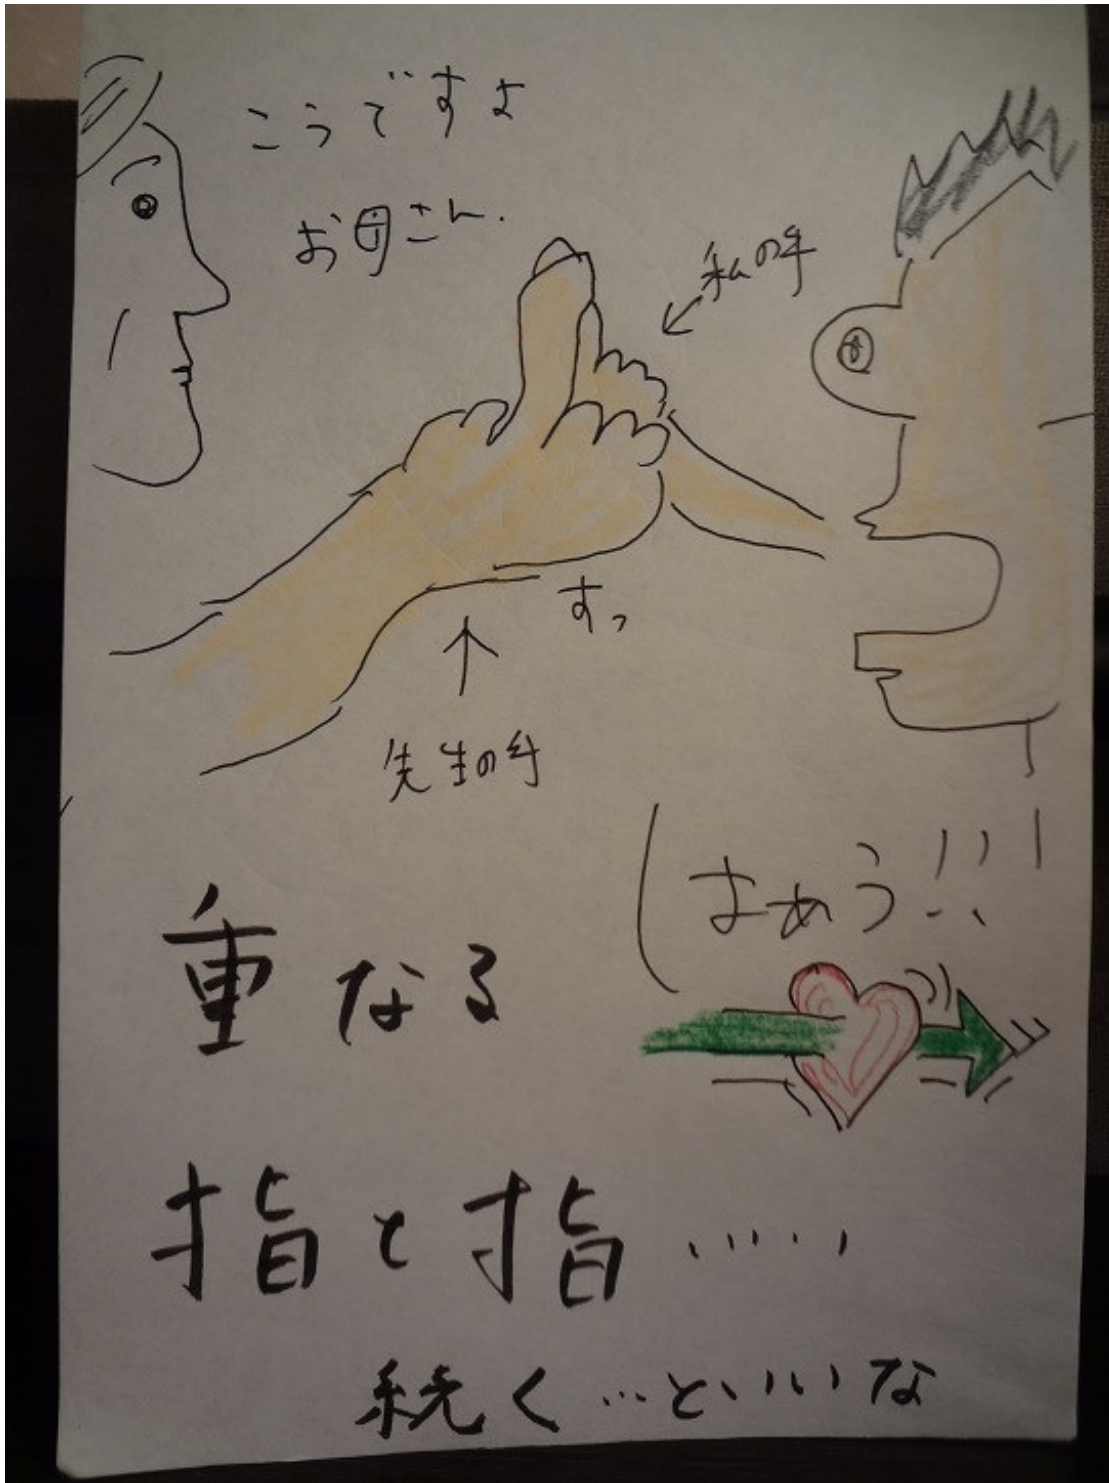 こうですよ
お母さん.
私の手
すっ
先生の手
はぁう!!!
重なる
指と指.....
続く...といいな